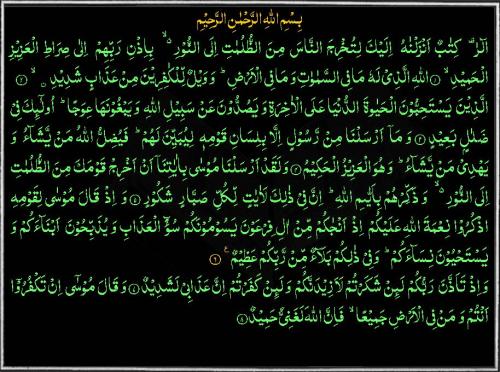 بِسْمِ اللهِ الرَّحْمٰنِ الرَّحِيْمِ
الٓرٰ ۟ كِتٰبٌ اَنْزَلْنٰهُ اِلَيْكَ لِتُخْرِجَ النَّاسَ مِنَ الظُّلُمٰتِ اِلَى النُّوْرِ ۙ۬ بِاِذْنِ رَبِّهِمْ اِلٰى صِرَاطِ الْعَزِيْزِ
الْحَمِيْدِ ۙ﴿۱﴾ اللهِ الَّذِيْ لَهٗ مَا فِي السَّمٰوٰتِ وَمَا فِي الْاَرْضِ ؕ وَوَيْلٌ لِّلْكٰفِرِيْنَ مِنْ عَذَابٍ شَدِيْدِ ۙ﴿۲﴾
الَّذِيْنَ يَسْتَحِبُّوْنَ الْحَيٰوةَ الدُّنْيَا عَلَى الْاٰخِرَةِ وَيَصُدُّوْنَ عَنْ سَبِيْلِ اللهِ وَيَبْغُوْنَهَا عِوَجًا ؕ اُولٰٓئِكَ فِيْ
ضَلٰلٍۭ بَعِيْدٍ ﴿۳﴾ وَمَاۤ اَرْسَلْنَا مِنْ رَّسُوْلٍ اِلَّا بِلِسَانِ قَوْمِهٖ لِيُبَيِّنَ لَهُمْ ؕ فَيُضِلُّ اللهُ مَنْ يَّشَآءُ وَ
يَهْدِيْ مَنْ يَّشَآءُ ؕ وَهُوَ الْعَزِيْزُ الْحَكِيْمُ ﴿۴﴾ وَلَقَدْ اَرْسَلْنَا مُوْسٰى بِاٰيٰتِنَاۤ اَنْ اَخْرِجْ قَوْمَكَ مِنَ الظُّلُمٰتِ
اِلَى النُّوْرِ ۙ۬ وَذَكِّرْهُمْ بِاَيّٰىمِ اللهِ ؕ اِنَّ فِيْ ذٰلِكَ لَاٰيٰتٍ لِّكُلِّ صَبَّارٍ شَكُوْرٍ ﴿۵﴾ وَاِذْ قَالَ مُوْسٰى لِقَوْمِهِ
اذْكُرُوْا نِعْمَةَ اللهِ عَلَيْكُمْ اِذْ اَنْجٰكُمْ مِّنْ اٰلِ فِرْعَوْنَ يَسُوْمُوْنَكُمْ سُوْٓءَ الْعَذَابِ وَيُذَبِّحُوْنَ اَبْنَآءَكُمْ وَ
يَسْتَحْيُوْنَ نِسَآءَكُمْ ؕ وَفِيْ ذٰلِكُمْ بَلَآءٌ مِّنْ رَّبِّكُمْ عَظِيْمٌ ﴿۶﴾ ع
وَاِذْ تَاَذَّنَ رَبُّكُمْ لَىِٕنْ شَكَرْتُمْ لَاَزِيْدَنَّكُمْ وَلَىِٕنْ كَفَرْتُمْ اِنَّ عَذَابِيْ لَشَدِيْدٌ ﴿۷﴾ وَقَالَ مُوْسٰۤى اِنْ تَكْفُرُوْۤا
اَنْتُمْ وَمَنْ فِي الْاَرْضِ جَمِيْعًا ۙ فَاِنَّ اللهَ لَغَنِيٌّ حَمِيْدٌ ﴿۸﴾